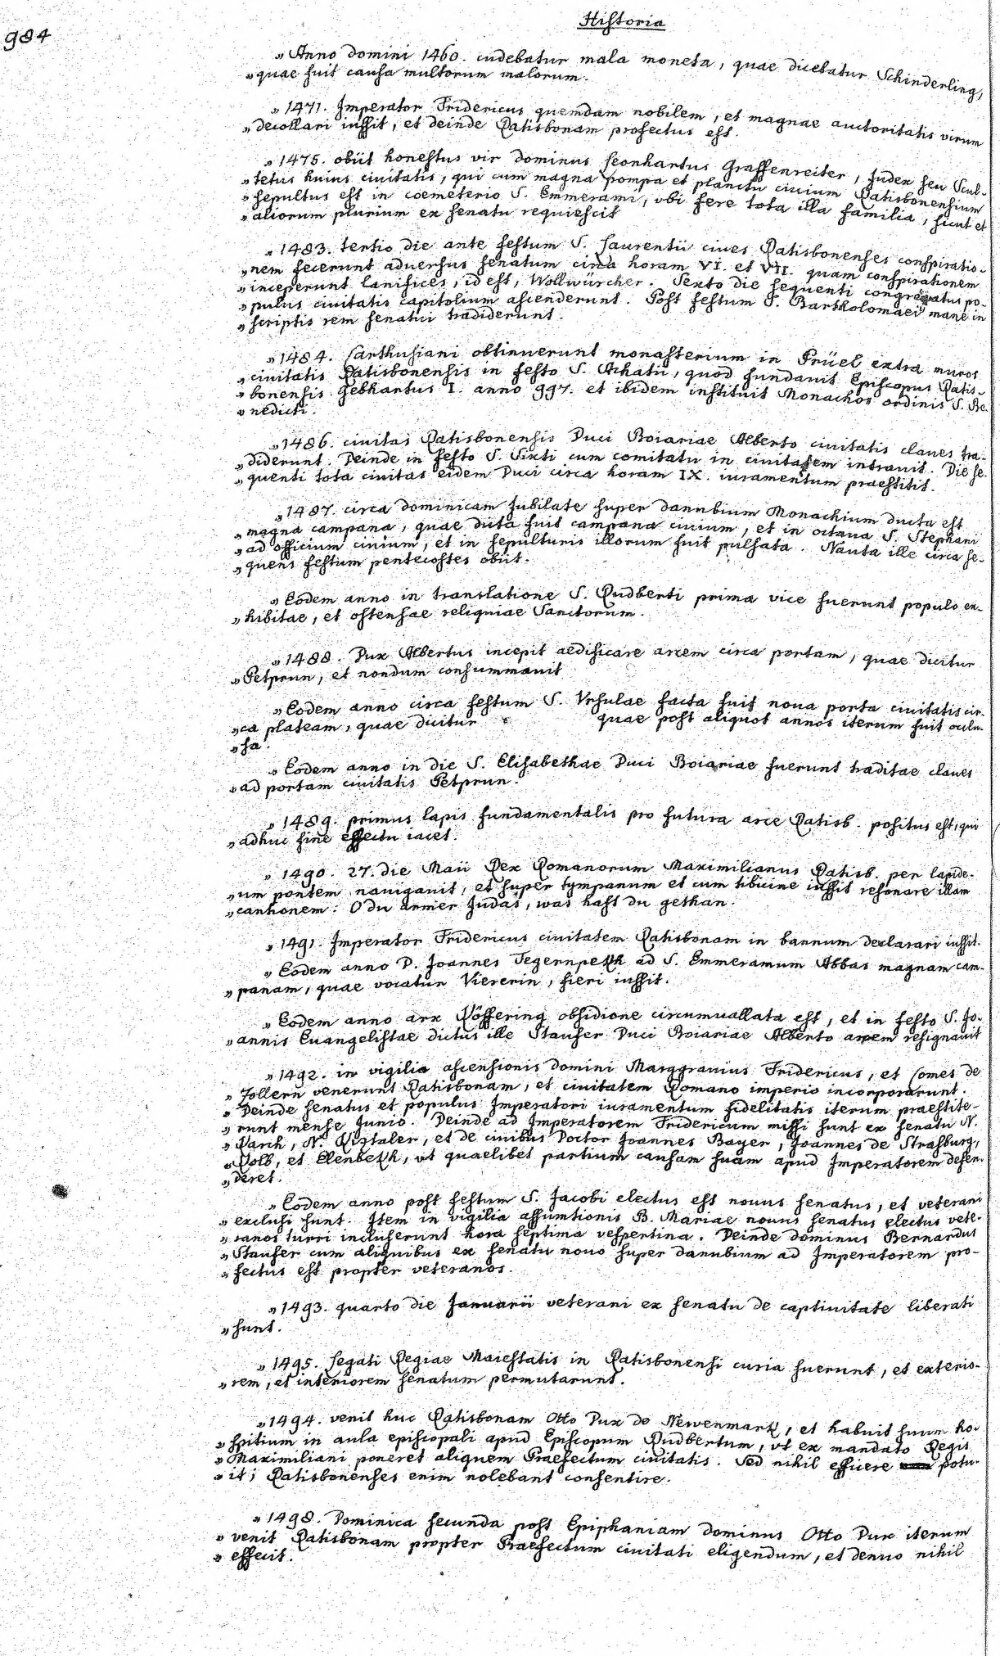 984
Historia
„Anno domini 1460. cudebatur mala moneta, quae dicebatur Schinderling,
„quae fuit causa multorum malorum.
„1471. Imperator Fridericus quemdam nobilem, et magnae auctoritatis virum
„decollari iussit, et deinde Ratisbonam profectus est.
„1475. obiit honestus vir dominus Leonhartus Graffenreiter, Judex seu Scul-
„tetus huius civitatis, qui cum magna pompa et planctu civium Ratisbonensium
„sepultus est in coemeterio S. Emmerami, vbi fere tota illa familia, sicut et
„aliorum plurium ex senatu requiescit
„1483. tertio die ante festum S. Laurentii cives Ratisbonenses conspiratio-
„nem fecerunt adversus senatum circa horam VI. et VII. quam conspirationem
„inceperunt lanifices, id est, Wollwürcher. Sexto die sequenti congregatus po-
„pulus civitatis capitolium ascenderunt. Post festum S. Bartholomaei mane in
„scriptis rem senatui tradiderunt.
„1484. Carthusiani obtinuerunt monasterium in Prüel extra muros
„civitatis Ratisbonensis in festo S. Achatii, quod fundavit Episcopus Ratis-
„bonensis Gebhartus I. anno 997. et ibidem instituit Monachos ordinis S. Be-
„nedicti.
„1486. civitas Ratisbonensis Duci Boiariae Alberto civitatis claves tra-
„diderunt. Deinde in festo S. Sixti cum comitatu in civitatem intravit. Die se-
„quenti tota civitas eidem Duci circa horam IX. iuramentum praestitit.
„1487. circa dominicam Jubilate super danubium Monachium ducta est
„magna campana, quae dicta fuit campana civium, et in octava S. Stephani
„ad officium civium, et in sepulturis illorum fuit pulsata. Nauta ille circa se-
„quens festum pentecostes obiit.
„Eodem anno in translatione S. Rudberti prima vice fuerunt populo ex-
„hibitae, et ostensae reliquiae Sanctorum.
„1488. Dux Albertus incepit aedificare arcem circa portam, quae dicitur
„Petprun, et nondum consummavit
„Eodem anno circa festum S. Vrsulae facta fuit nova porta civitatis cir-
„ca plateam, quae dicitur quae post aliquot annos iterum fuit oclu-
„sa.
„Eodem anno in die S. Elisabethae Duci Boiariae fuerunt traditae claves
„ad portam civitatis Petprun.
„1489. primus lapis fundamentalis pro futura arce Ratisb. positus est, qui
„adhuc sine effectu iacet.
„1490. 27. die Maii Rex Romanorum Maximilianus Ratisb. per lapide-
„um pontem navigavit, et super tympanum et cum tibicine iussit resonare illam
„cantionem: O du armer Judas, was hast du gethan.
„1491. Imperator Fridericus civitatem Ratisbonam in bannum declarari iussit.
„Eodem anno D. Joannes Tegernpekh ad S. Emmeramum Abbas magnam cam-
„panam, quae vocatur Viererin, fieri iussit.
„Eodem anno arx Köffering obsidione circumvallata est, et in festo S. Jo-
„annis Euangelistae dictus ille Staufer Duci Boiariae Alberto arcem resignavit
„1492. in vigilia ascensionis domini Marggravius Fridericus, et Comes de
„Zollern venerunt Ratisbonam, et civitatem Romano imperio incorporarunt.
„Deinde senatus et populus Imperatori iuramentum fidelitatis iterum praestite-
„runt mense Junio. Deinde ad Imperatorem Fridericum missi sunt ex senatu N.
„Varch, N. et de civibus Doctor Joannes Bayer, Joannes de Strasburg,
„et Elenbekh, vt quaelibet partium causam suam apud Imperatorem defen-
„deret.
„Eodem anno post festum S. Jacobi electus est novus senatus, et veterani
„exclusi sunt. Item in vigilia assumtionis B. Mariae novus senatus electus vete-
„ranos turri incluserunt hora septima vespertina. Deinde dominus Bernardus
„Staufer cum aliquibus ex senatu novo super danubium ad Imperatorem pro-
„fectus est propter veteranos.
„1493. quarto die Januarii veterani ex senatu de captivitate liberati
„sunt.
„1495. Legati Regiae Maiestatis in Ratisbonensi curia fuerunt, et exterio-
„rem, et interiorem senatum permutarunt.
„1494. venit huc Ratisbonam Otto Dux de Newenmarkh, et habuit suum ho-
„spitium in aula episcopali apud Episcopum Rudbertum, vt ex mandato Regis
„Maximiliani poneret aliquem Praefectum civitatis. Sed nihil efficere potu-
„it; Ratisbonenses enim nolebant consentire.
„1498. Dominica secunda post Epiphaniam dominus Otto Dux iterum
„venit Ratisbonam propter Praefectum civitati eligendum, et denuo nihil
„effecit.